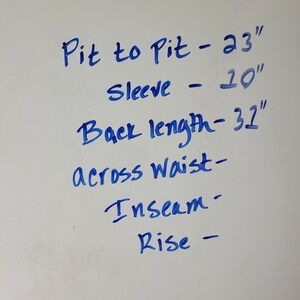 Pit to Pit - 23"
Sleeve - 10"
Back length - 31"
across waist -
Inseam -
Rise -